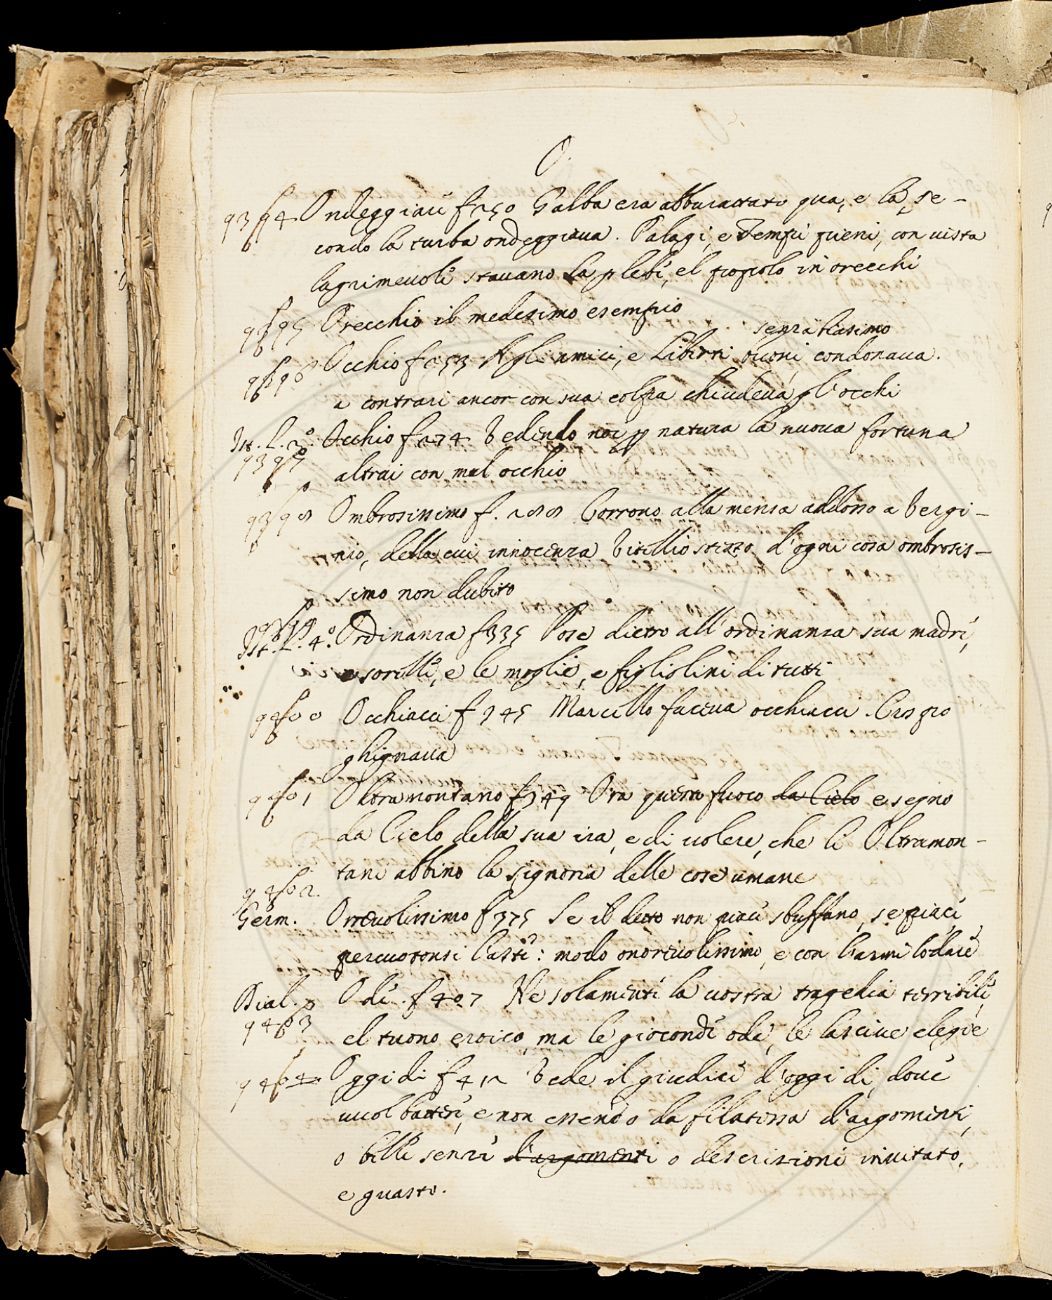 O.
Ondeggiare f 250 Galba era abburattato qua, e là, se-
condo la turba ondeggiava. Palagi, e Tempij pieni, con vista
lagrimevole stavano la plebe, el popolo in orecchi
Orecchio il medesimo esempio
segnatissimo
Occhio f 253 Agl'amici, e Liberti buoni condonava.
a contrari ancor con sua colpa chiudeva gl'occhi
Ist. L. 2º. Occhio f 274 Vedendo noi p natura la nuova fortuna
altrui con mal occhio
Ombrosissimo f. 288 Corrono alla mensa addosso a Vergi-
nio, della cui innocenza Vitellio stesso d'ogni cosa ombrosis-
simo non dubitò
Ist. L. 4º. Ordinanza f 335 Pose dietro all'ordinanza sua madre,
sorelle, e le moglie, e figliolini di tutti
Occhiacci f 345 Marcello faceva occhiacci. Crispo
ghignava
Oltramontano f 349 Ora questo fuoco da Cielo e segno
da Cielo della sua ira, e di volere, che li Oltramon-
tani abbino la signoria delle cose umane
Germ. Orrevolissimo f 375 Se il detto non piace sbuffano, se piace
percuotonsi l'aste: modo onorevolissimo, e con l'armi lodare
Dial. Ode f 407 Ne solamente la vostra tragedia terribile,
el tuono eroico, ma le gioconde ode, le lascive elegie
Oggidi f 412 Vede il giudice d'oggi dì, dove
vuol battere, e non essendo da filatessa d'argomenti,
o belle senze d'argomenti o descrizioni invitato,
e guasto.